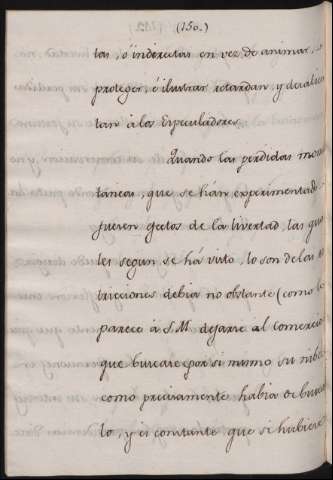 (150.)
tas, ó indirectas en vez de animar,
proteger, é ilustrar retardan, y desalien
tan á los Especuladores.
Quando las perdidas mom
taneas, que se hán experimentado
fuesen efectos de la livertad, las qua
les segun se há visto, lo son de las
tricciones debia no obstante (como lo
parece á S.M. dejarse al Comercio
que buscase por si mismo su nibel
como precisamente habia de busca
lo, y es constante que si hubiese